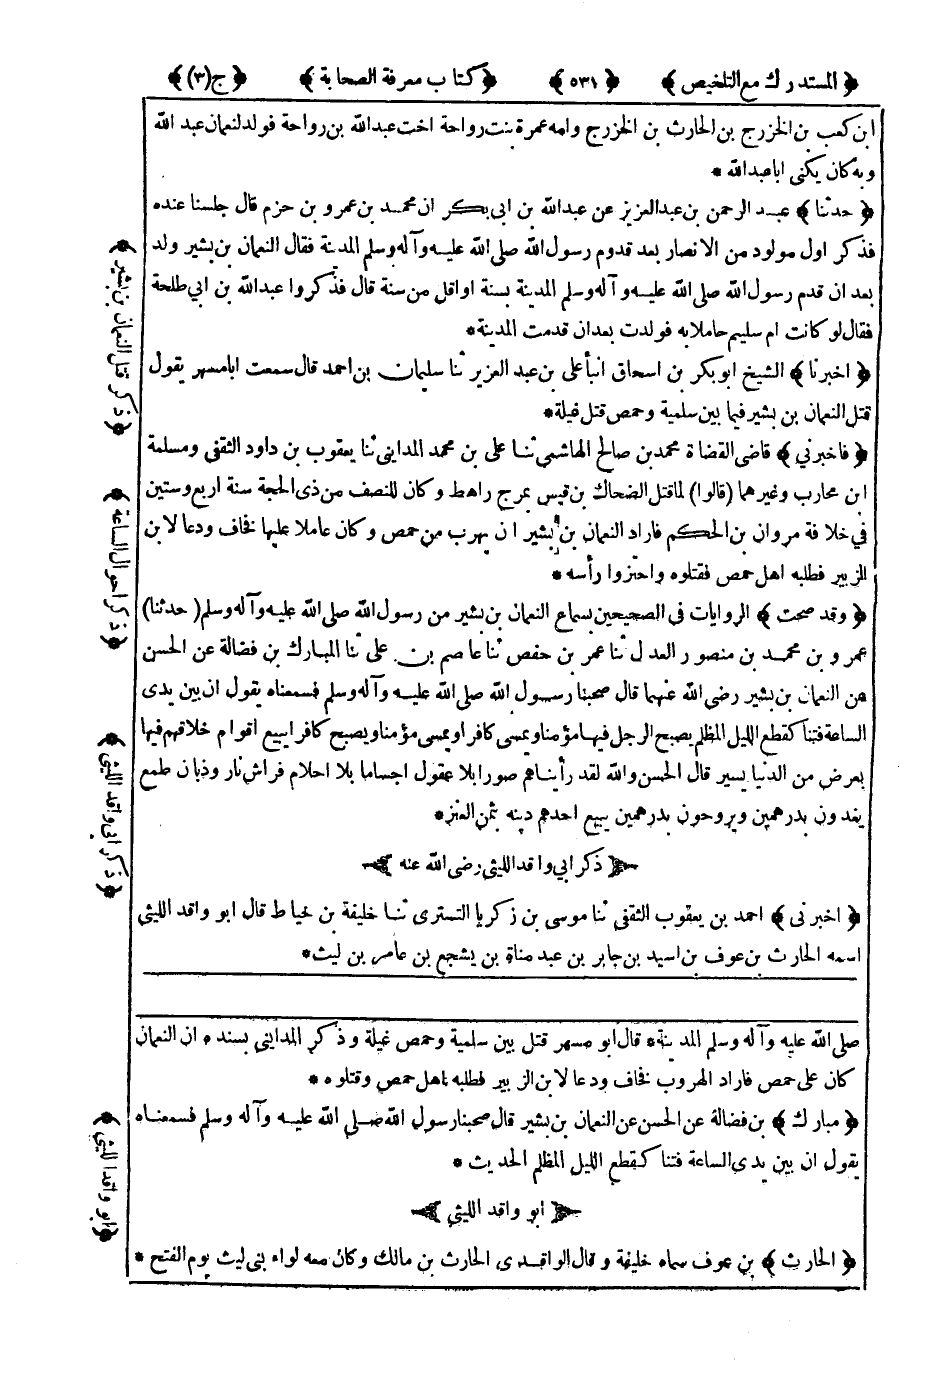 ﴿ المستدرك مع التلخيص ﴾ ﴿ ٥٣١ ﴾ ﴿ كتاب معرفة الصحابة ﴾ ﴿ ج(٣) ﴾
ابن كعب بن الخزرج بن الحارث بن الخزرج وامه عمرة بنت رواحة اخت عبدالله بن رواحة فولد لنعمان عبد الله
وبه كان يكنى اباعبدالله *
﴿ حدثنا ﴾ عبد الرحمن بن عبدالعزيز عن عبدالله بن ابى بكر ان محمد بن عمرو بن حزم قال جلسنا عنده
فذكر اول مولود من الانصار بعد قدوم رسول الله صلى الله عليه وآله وسلم المدينة فقال النعمان بن بشير ولد
بعد ان قدم رسول الله صلى الله عليه وآله وسلم المدينة بسنة او اقل من سنة قال فذكروا عبدالله بن ابى طلحة
فقال لو كانت ام سليم حاملا به فولدت بعد ان قدمت المدينة *
﴿ اخبرنا ﴾ الشيخ ابوبكر بن اسحاق انبأ على بن عبد العزيز ثنا سليمان بن احمد قال سمعت ابامسهر يقول
قتل النعمان بن بشير فيما بين سلمية وحمص قتل غيلة *
﴿ فاخبرني ﴾ قاضى القضاة محمد بن صالح الهاشمى ثنا على بن محمد المداينى ثنا يعقوب بن داود الثقفى ومسلمة
ابن محارب وغيرهما (قالوا) لما قتل الضحاك بن قيس بمرج راهط وكان للنصف من ذى الحجة سنة اربع وستين
في خلافة مروان بن الحكم فاراد النعمان بن بشير ان يهرب من حمص وكان عاملا عليها فخاف ودعا لابن
الزبير فطلبه اهل حمص فقتلوه واحتزوا رأسه *
﴿ وقد صحت ﴾ الروايات فى الصحيحين بسماع النعمان بن بشير من رسول الله صلى الله عليه وآله وسلم (حدثنا)
عمرو بن محمد بن منصور العدل ثنا عمر بن حفص ثنا عاصم بن على ثنا المبارك بن فضالة عن الحسن
عن النعمان بن بشير رضى الله عنهما قال صحبنا رسول الله صلى الله عليه وآله وسلم فسمعناه يقول ان بين يدى
الساعة فتنا كقطع الليل المظلم يصبح الرجل فيها مؤمنا ويمسى كافرا ويمسى مؤمنا ويصبح كافرا يبيع اقوام خلاقهم فيها
بعرض من الدنيا يسير قال الحسن والله لقد رأيناهم صورا بلا عقول اجساما بلا احلام فراش نار وذبان طمع
يغدون بدرهمين ويروحون بدرهمين يبيع احدهم دينه بثمن العنز *
ذكر ابي واقد الليثى رضى الله عنه
﴿ اخبرنى ﴾ احمد بن يعقوب الثقفى ثنا موسى بن زكريا التسترى ثنا خليفة بن خياط قال ابو واقد الليثى
اسمه الحارث بن عوف بن اسيد بن جابر بن عبد مناة بن يشجع بن عامر بن ليث *
صلى الله عليه وآله وسلم المدينة * قال ابو مسهر قتل بين سلمية وحمص غيلة وذكر المدايني بسنده ان النعمان
كان على حمص فاراد الهروب فخاف ودعا لابن الزبير فطلبه اهل حمص وقتلوه *
﴿ مبارك ﴾ بن فضالة عن الحسن عن النعمان بن بشير قال صحبنا رسول الله صلى الله عليه وآله وسلم فسمعناه
يقول ان بين يدى الساعة فتنا كقطع الليل المظلم الحديث *
ابو واقد الليثي
﴿ الحارث ﴾ بن عوف سماه خليفة وقال الواقدى الحارث بن مالك وكان معه لواء بنى ليث يوم الفتح *
﴿ ذكر قتل النعمان بن بشير ﴾
﴿ ذكر احوال الساعة ﴾
﴿ ذكر ابى واقد الليثي ﴾
﴿ ابو واقد الليثي ﴾